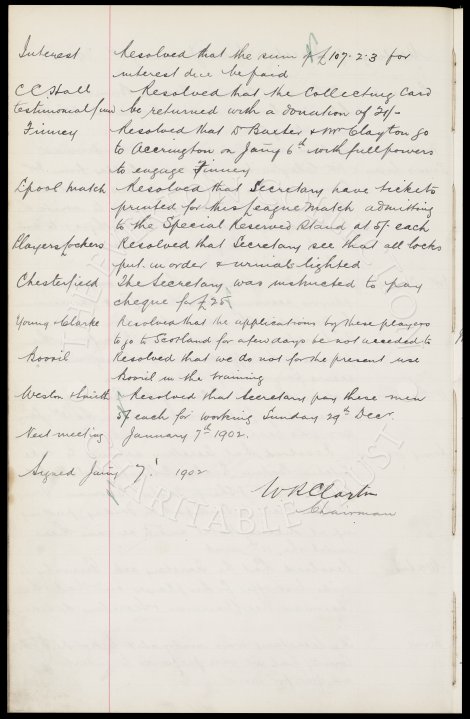 Interest Resolved that the sum of £107-2-3 for
interest due be paid
C C Hall Resolved that the Collecting Card
testimonial fund be returned with a donation of 21/-
Finney Resolved that Dr Baxter & Mr Clayton go
to Accrington on Jany 6th with full powers
to engage Finney
L'pool Match Resolved that Secretary have tickets
printed for this League Match admitting
to the Special Reserved Stand at 5/- each
Players Lockers Resolved that Secretary see that all locks
put in order & urinals lighted
Chesterfield The Secretary was instructed to pay
cheque for £25
Young Clarke Resolved that the applications by these players
to go to Scotland for a few days be not acceeded to
Bovril Resolved that we do not for the present use
Bovril in the training
Weston & Smith Resolved that Secretary pay these men
5/ each for working Sunday 29th Decr.
Next meeting January 7th 1902.
Signed Jany 7th 1902
W R Clayton
Chairman
CHARITABLE TRUST